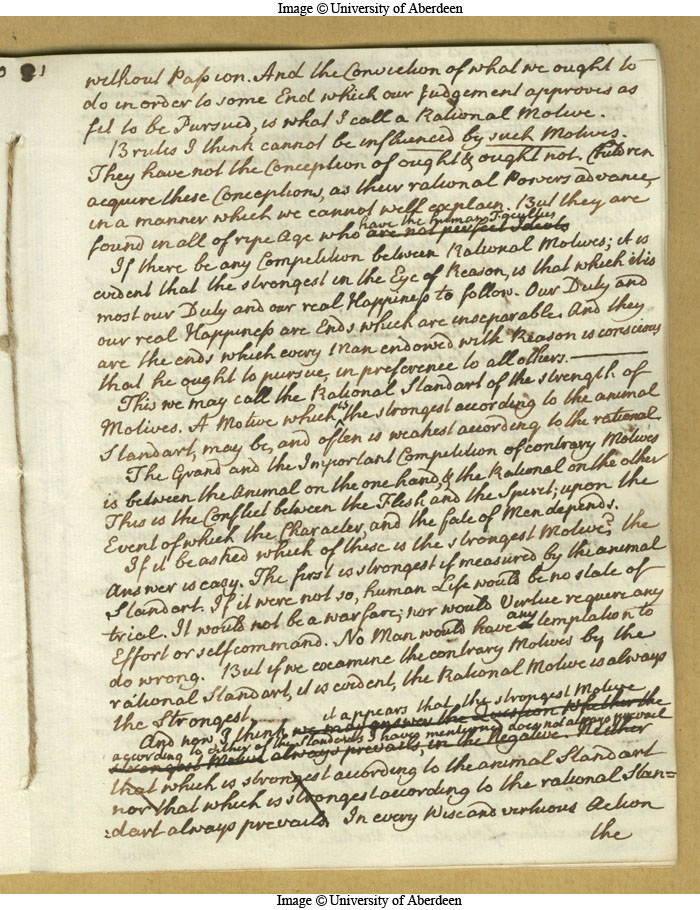 Image © University of Aberdeen
without Passion. And the Conviction of what we ought to
do in order to some End which our Judgement approves as
fit to be Pursued, is what I call a Rational Motive.
Brutes I think cannot be influenced by such Motives.
They have not the Conception of ought & ought not. Children
acquire these Conceptions, as their rational Powers advance,
in a manner which we cannot well explain. But they are
have the human Faculties
found in all of ripe Age who are not perfect Ideots
If there be any Competition between Rational Motives; it is
evident that the strongest in the Eye of Reason, is that which it is
most our Duty and our real Happiness to follow. Our Duty and
our real Happiness are Ends which are inseparable. And they
are the ends which every Man endowed with Reason is conscious
that he ought to pursue, in preference to all others.
This we may call the Rational Standart of the strength of
Motives. A Motive which is the strongest according to the animal
Standart, may be, and often is weakest according to the rational
The Grand and the Important Competition of contrary Motives
is between the Animal on the one hand, & the Rational on the other
This is the Conflict between the Flesh and the Spirit; upon the
Event of which the Character, and the fate of Men depends.
If it be asked which of these is the strongest Motive? the
Answer is easy. The first is strongest if measured by the animal
Standart. If it were not so, human Life would be no state of
trial. It would not be a warfare; nor would Virtue require any
Effort or selfcommand. No Man would have any temptation to
do wrong. But if we examine the contrary Motives by the
rational Standart, it is evident, the Rational Motive is always
the Strongest
it appears that the strongest Motive
And now I think we may answer the Question whether the
according to either of the Standards I have mentioned does not always prevail
strongest Motive always prevails in the Negative. Neither
that which is strongest according to the animal Standart
nor that which is strongest according to the rational Stan=
=dart always prevails. In every Wise and virtuous Action
the
Image © University of Aberdeen